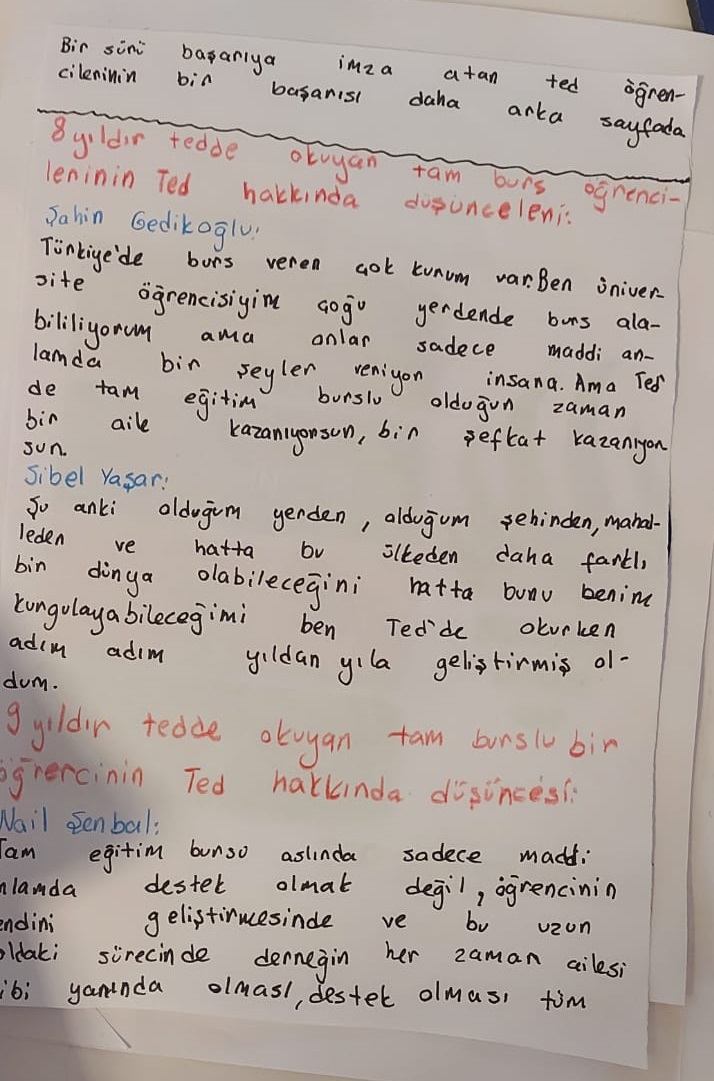 Bir sürü başarıya imza atan ted öğren-
cilerinin bir başarısı daha arka sayfada
8 yıldır tedde okuyan tam burs öğrenci-
lerinin Ted hakkında düşünceleri:
Şahin Gedikoğlu:
Türkiye'de burs veren çok kurum var. Ben üniver
site öğrencisiyim çoğu yerdende burs ala-
bililiyorum ama onlar sadece maddi an-
lamda bir şeyler veriyor insana. Ama Ted
de tam eğitim burslu olduğun zaman
bir aile kazanıyorsun, bir şefkat kazanıyor
sun.
Sibel Yaşar:
Şu anki olduğum yerden, olduğum şehirden, mahal-
leden ve hatta bu ülkeden daha farklı
bir dünya olabileceğini hatta bunu benim
kurgulayabileceğimi ben Ted'de okurken
adım adım yıldan yıla geliştirmiş ol-
dum.
9 yıldır tedde okuyan tam burslu bir
öğrercinin Ted hakkında düşüncesi:
Nail Şenbal:
Tam eğitim bursu aslında sadece maddi
nlamda destek olmak değil, öğrencinin
endini geliştirmesinde ve bu uzun
oldaki sürecinde derneğin her zaman ailesi
ibi yanında olması, destek olması tüm